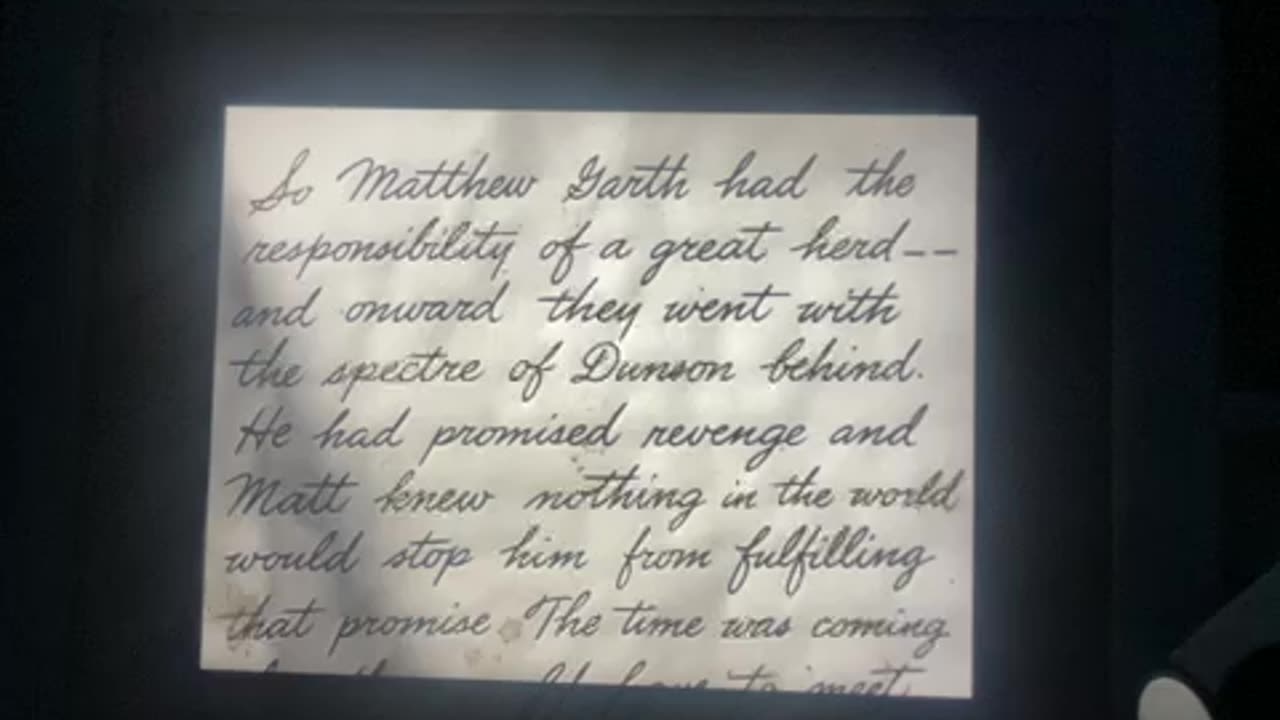 So Matthew Garth had the
responsibility of a great herd--
and onward they went with
the spectre of Dunson behind.
He had promised revenge and
Matt knew nothing in the world
would stop him from fulfilling
that promise. The time was coming
to meet